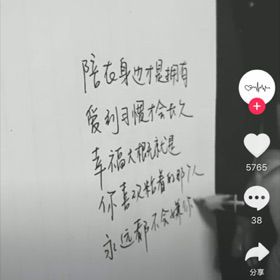 陪在身边才是拥有
爱到习惯才会长久
幸福大概就是
你喜欢粘着的那个人
永远都不会嫌你
5765
38
分享